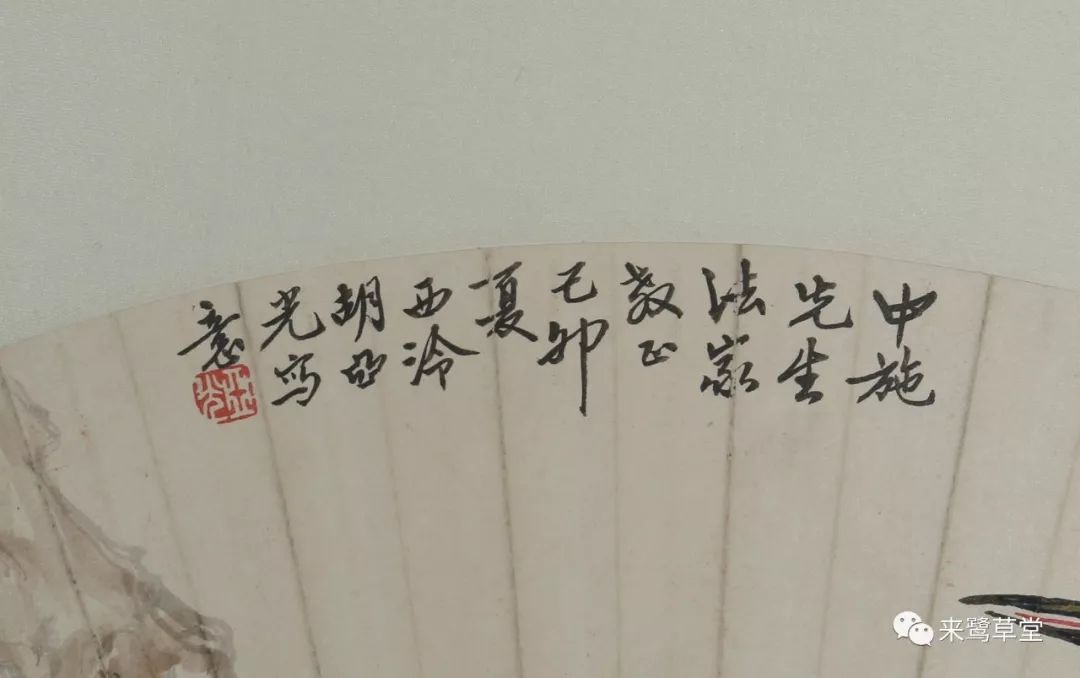 中施
先生
法家
教正
己卯
夏
西泠
胡亚
光写
意
亚光
来鹭草堂